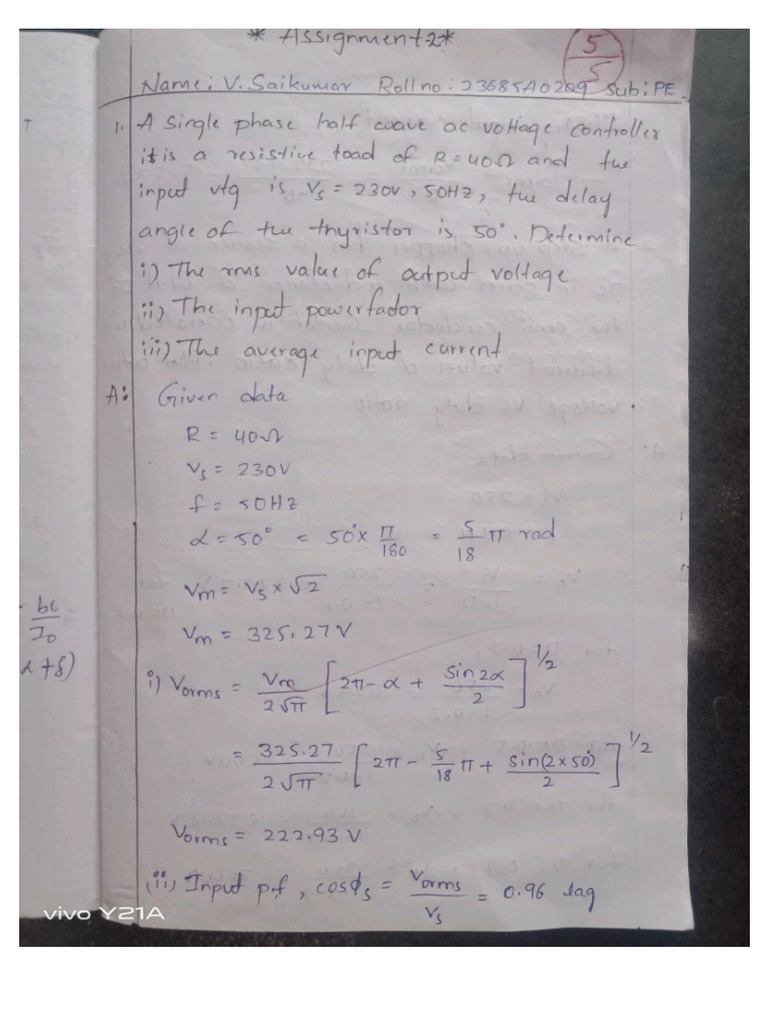 * Assignment-2*
5/5
Name: V. Saikumar Roll no: 23685A0209 Sub: PE
1. A single phase half wave ac voltage controller
it is a resistive load of R = 40Ω and the
input vtg is Vs = 230V, 50HZ, the delay
angle of the thyristor is 50°. Determine
i) The rms value of output voltage
ii) The input powerfactor
iii) The average input current
A: Given data
R = 40Ω
Vs = 230V
f = 50HZ
α = 50° = 50° × π/180 = 5/18 π rad
Vm = Vs × √2
Vm = 325.27 V
i) Vorms = Vm/2√π [2π - α + sin 2α/2]^1/2
= 325.27/2√π [2π - 5/18 π + sin(2×50°)/2]^1/2
Vorms = 222.93 V
(ii) Input p.f, cosϕs = Vorms/Vs = 0.96 lag
bc/Io
α + δ)
vivo Y21A